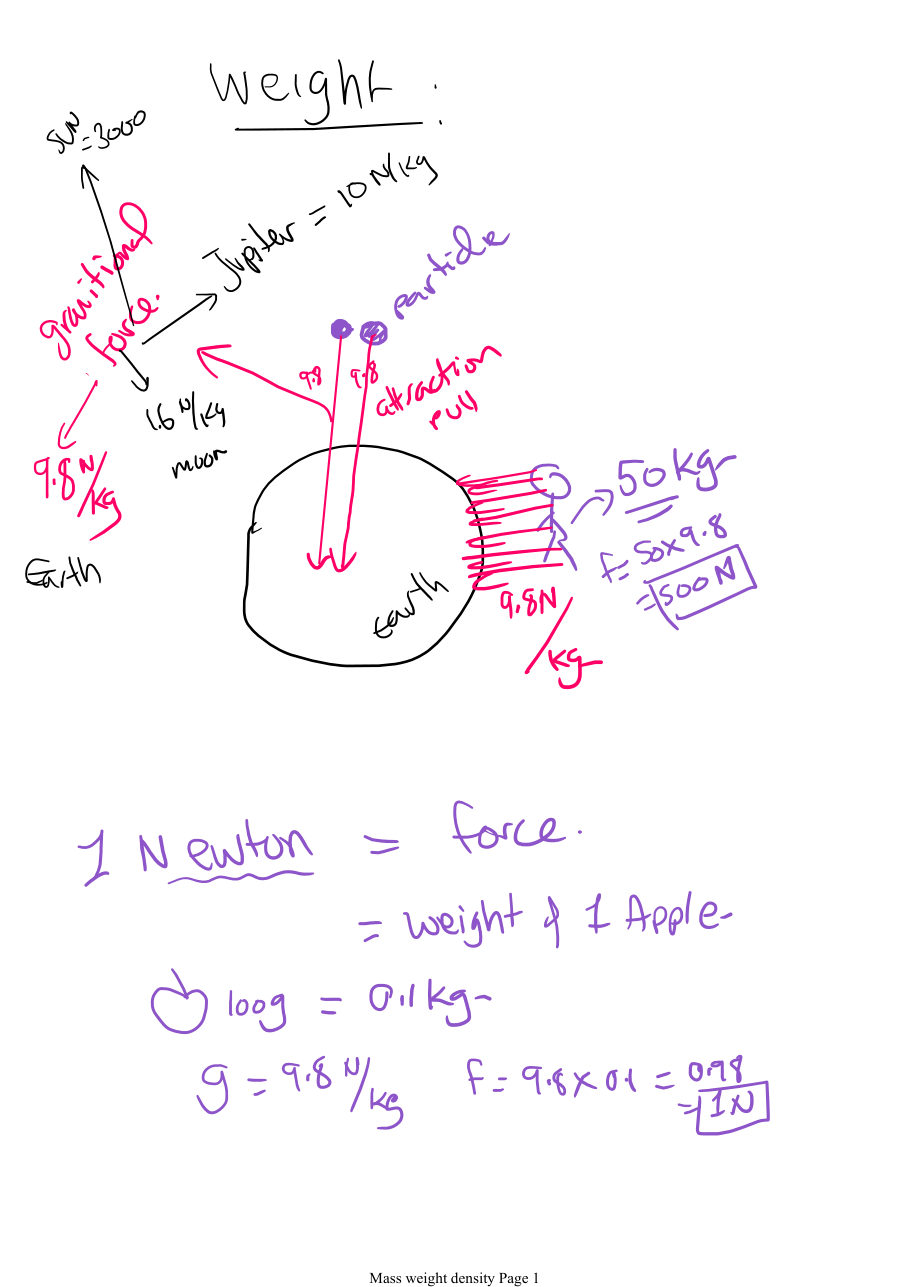 Weight :
SUN = 3000
Jupiter = 10 N/kg
particle
granitional
force.
9.8 9.8
attraction
pull
1.6 N/kg
moon
9.8 N/kg
Earth
50 kg
f = 50 x 9.8
= 500 N
Earth
9.8 N/kg
1 Newton = force.
= weight of 1 Apple
100g = 0.1 kg
g = 9.8 N/kg f = 9.8 x 0.1 = 0.98
= 1N
Mass weight density Page 1